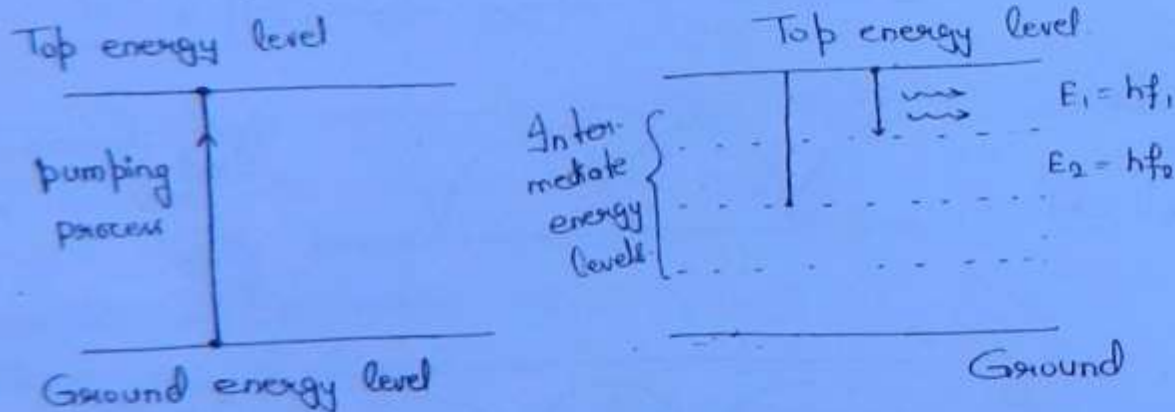 Top energy level
pumping
process
Ground energy level
Top energy level
Inter-
mediate
energy
levels.
E₁ = hf₁
E₂ = hf₂
Ground